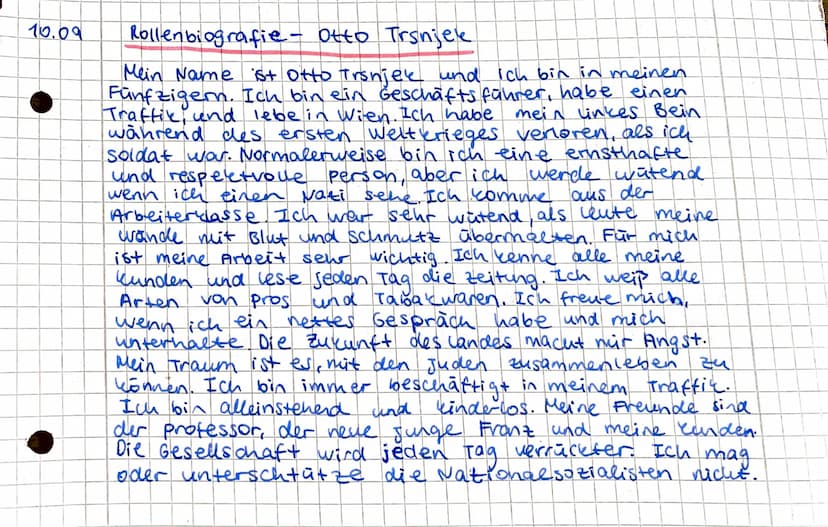 10.09 Rollenbiografie - Otto Trsnjek
Mein Name ist Otto Trsnjek und ich bin in meinen
Fünfzigern. Ich bin ein Geschäftsführer, habe einen
Traffik, und lebe in Wien. Ich habe mein linkes Bein
während des ersten Weltkrieges verloren, als ich
soldat war. Normalerweise bin ich eine ernsthafte
und respektvolle Person, aber ich werde wütend
wenn ich einen Nati sehe. Ich komme aus der
Arbeiterklasse. Ich war sehr wütend, als Leute meine
Wände mit Blut und Schmutz übermalten. Für mich
ist meine Arbeit sehr wichtig. Ich kenne alle meine
Kunden und lese jeden Tag die Zeitung. Ich weiß alle
Arten von Pros und Tabakwaren. Ich freue mich,
wenn ich ein nettes Gespräch habe und mich
unterhalte. Die Zukunft des Landes macht mir Angst.
Mein Traum ist es, mit den Juden zusammenleben zu
können. Ich bin immer beschäftigt in meinem Traffik.
Ich bin alleinstehend und kinderlos. Meine Freunde sind
der professor, der neue Junge Franz und meine Kunden.
Die Gesellschaft wird jeden Tag verrückter. Ich mag
oder unterschtütze die Nationalsozialisten nicht.